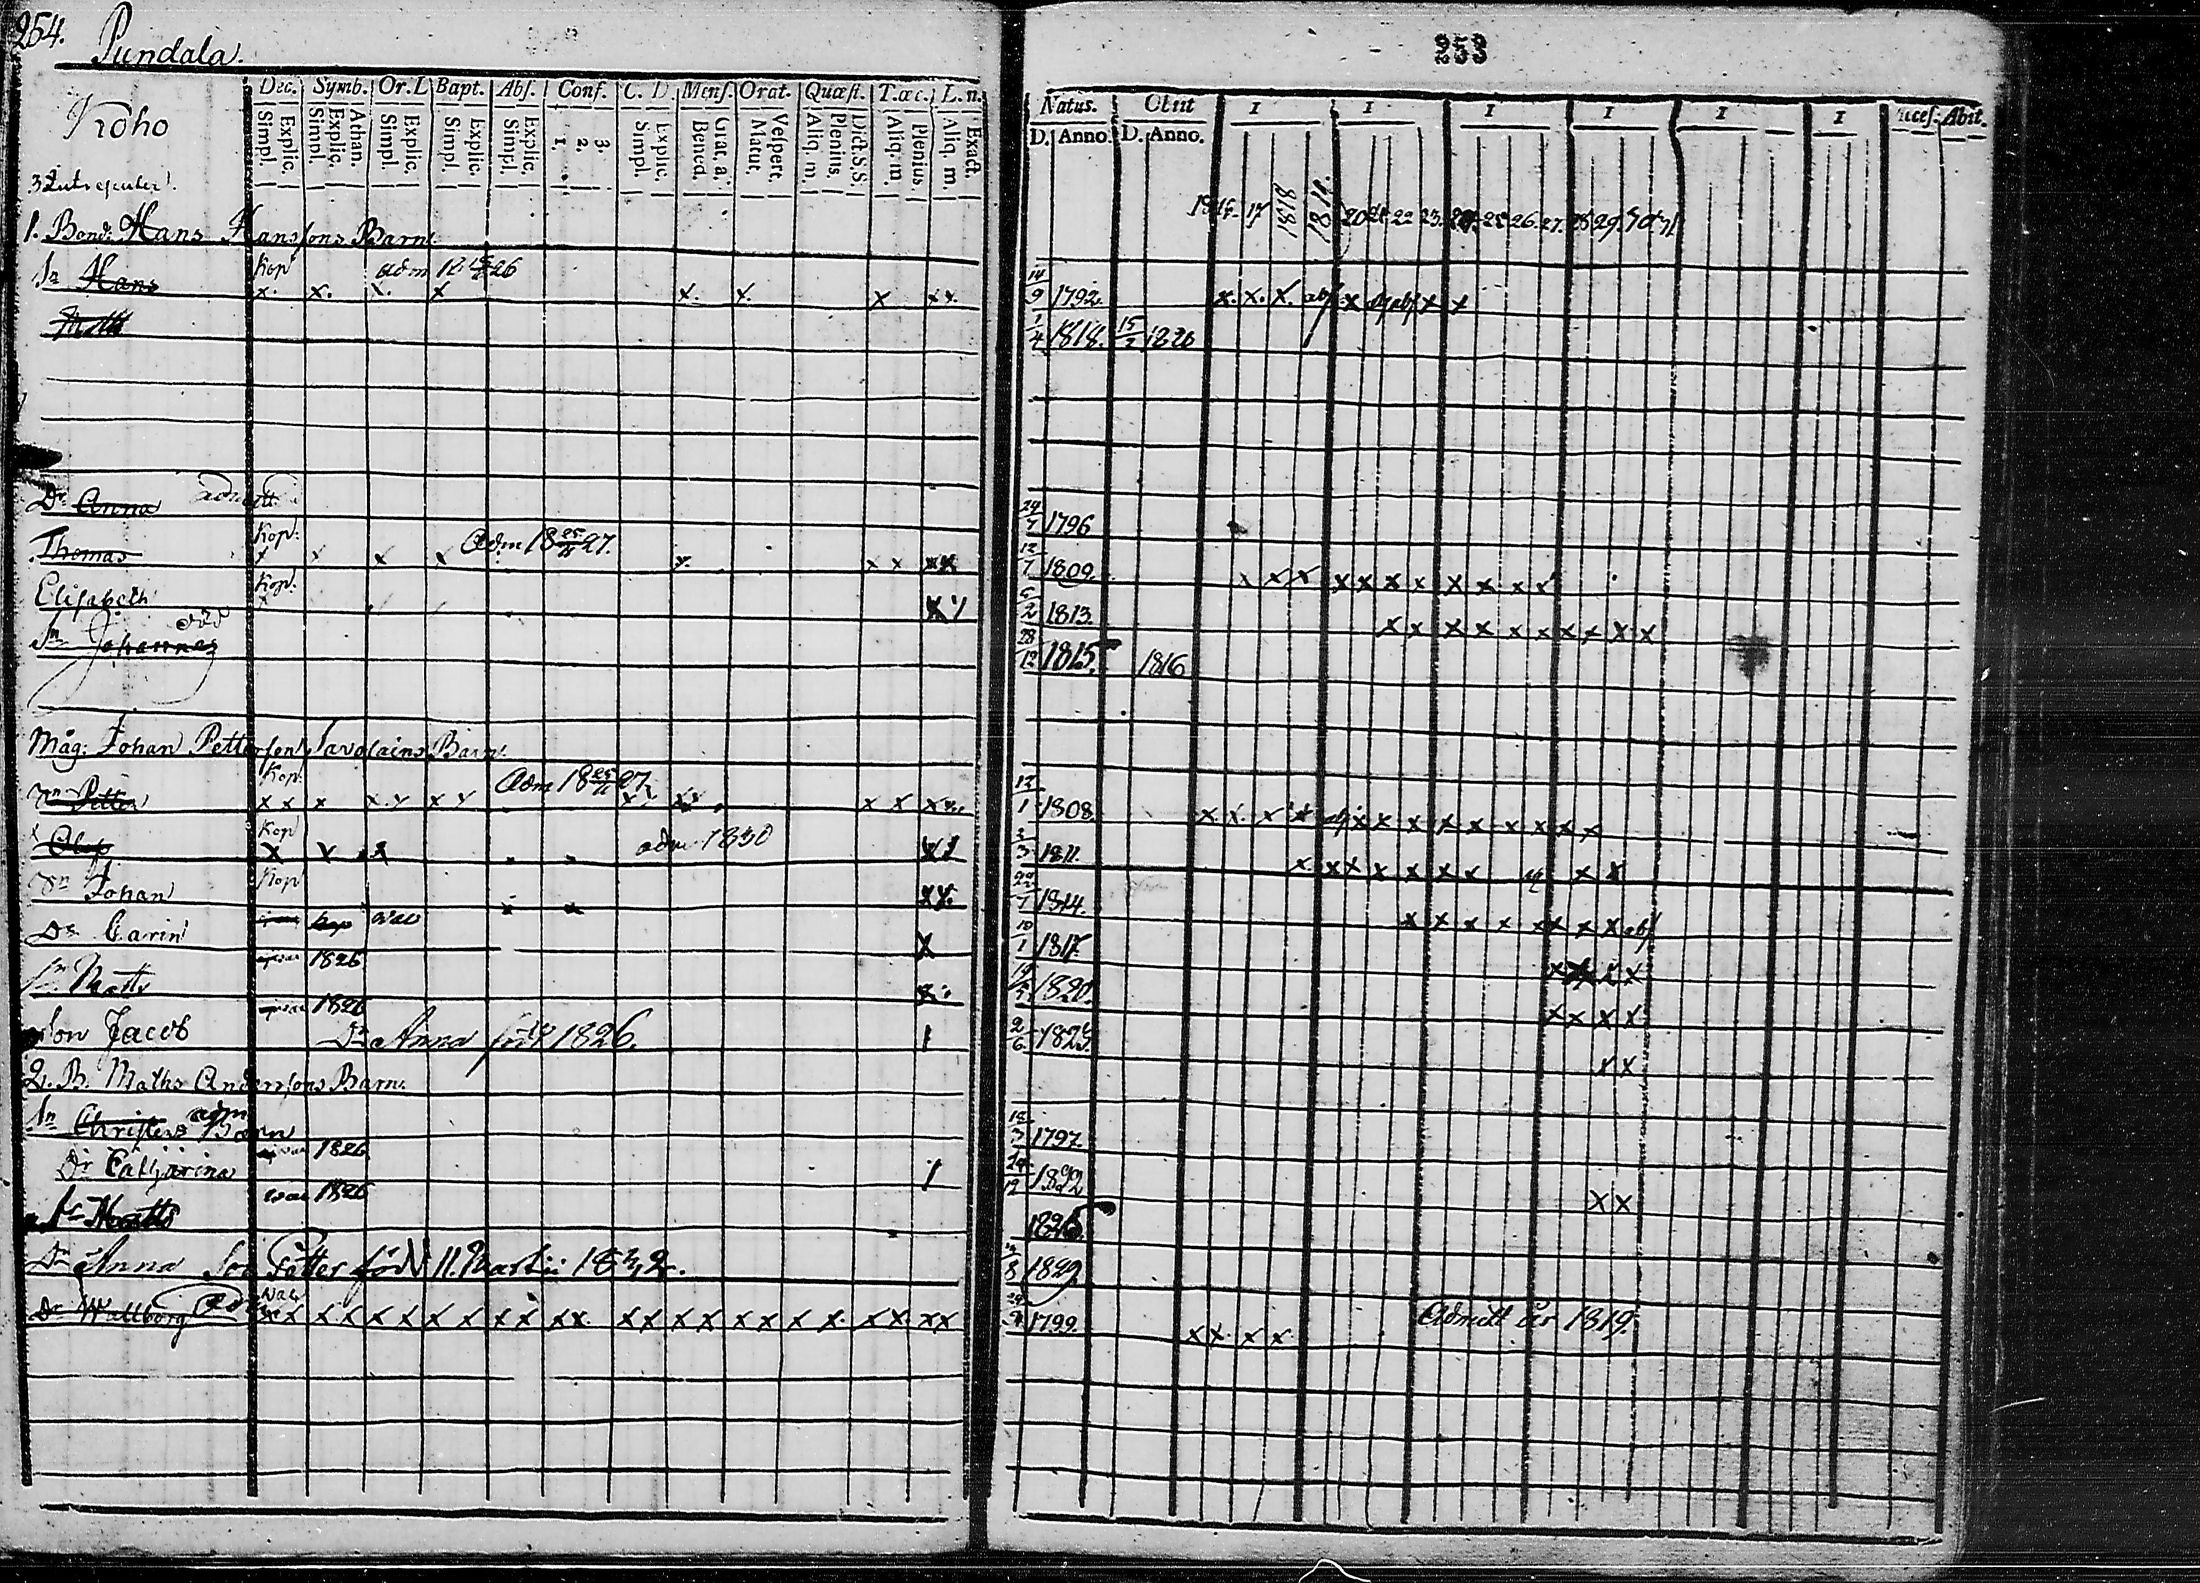 254.
Pundala.
253
Koho
Dec. Symb. Or. L Bapt. Abs. Conf. C. D Mens. Orat. Quæst. T. œc. L. n.
Explic. Simpl. Athan. Explic. Simpl. Explic. Simpl. Explic. Simpl. Explic. Simpl. 3. 2. 1. Explic. Simpl. Grat. a. Bened. Vespert. Matut. Dict. S. S. Plenius. Aliq. m. Plenius. Aliq. m. Exact. Aliq. m.
Natus. Obiit I I I I I I Acces. Abit.
D. Anno. D. Anno.
1816. 17 1818 1819. 20 21 22 23. 24. 25. 26. 27. 28 29. 30 31
1. Bond. Hans Hanssons Barn.
Sn Hans Kop adm 18 26 x. x. x. x x. x. x x x. 14/9 1792. x. x. x. abs x abs x x
Matts 1/4 1818. 15/2 1820
Dr Anna admitt. 29/7 1796
Thomas Kop. Adm 18 25/11 27. x x x x x. x x x x 12/7 1809. x x x x x x x x x x x
Elisabeth Kop. x x 6/2 1813. x x x x x x x x x x
Sn Johannes död 28/12 1815. 1816
Måg. Johan Pettersson Savolains Barn.
Sn Petter Kop. Adm 18 25/11 27. x x x x x x x x x x x x x 12/1 1808 x. x. x x abs x x x x x x x x x
Olof Kop x x x adm 1830 x 3/3 1811. x. x x x x x x x x
Sn Johan Kop x x. 22/7 1814. x x x x x x x x abs
Dr Carin x 10/1 1817. x x x x
Sn Matts 1826 x 19/5 1820. x x x x
Son Jacob 1826 Dr Anna född 1826. 2/6 1823. x x
2. B. Maths Anderssons Barn.
Sn Christers adm Barn 12/3 1797.
Dr Catharina 1826 x x
Sn Matts 1826 1826
Dr Anna Son Petter född 11. Martii 1832. 1829
Dr Wallborg Adm x x x x x x x x x x x x x x x x x x x x x x x x 1799. x x. x x Admitt år 1819.